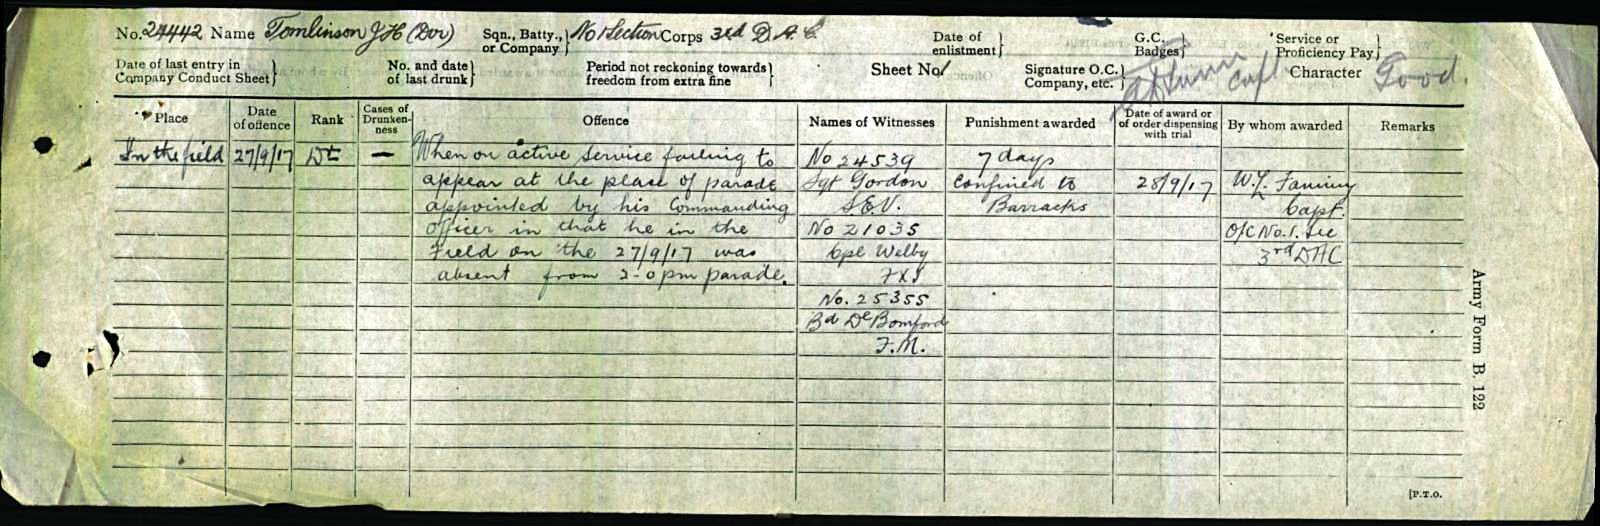 No. 24442 Name Tomlinson J H (Dvr) Sqn., Batty., or Company} No 1 Section Corps 3rd D.A.C. Date of enlistment} G.C. Badges} Service or Proficiency Pay}
Date of last entry in Company Conduct Sheet} No. and date of last drunk} Period not reckoning towards freedom from extra fine} Sheet No. 1 Signature O.C. Company, etc.} Capt Character Good.
Place Date of offence Rank Cases of Drunkenness Offence Names of Witnesses Punishment awarded Date of award or of order dispensing with trial By whom awarded Remarks
In the field 27/9/17 — When on active service failing to No 24539 7 days
appear at the place of parade Sgt Gordon confined to 28/9/17 W.L.
appointed by his Commanding S.E.V. Barracks Capt.
Officer in that he in the No 21035 O/C No. 1. Sec
Field on the 27/9/17 was Cpl Welby 3rd DAC
absent from 2-0 pm parade.
No. 25355
Bd De Bomford
F.M.
Army Form B. 122
[P.T.O.